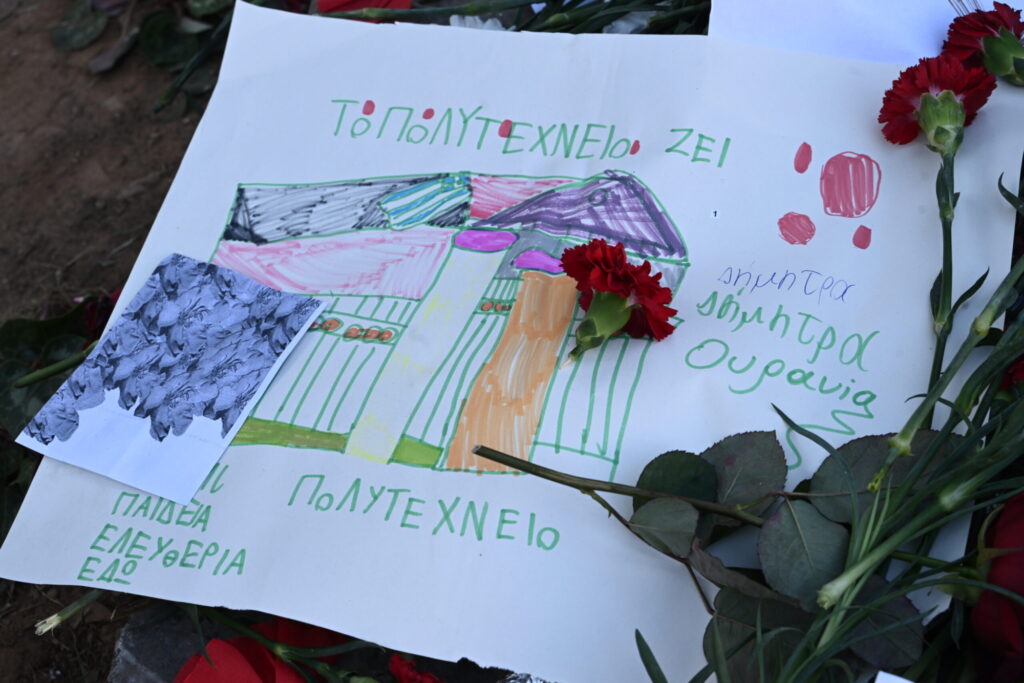 ΤΟ ΠΟΛΥΤΕΧΝΕΙΟ ΖΕΙ
δήμητρα
δήμητρα
Ουρανία
ΠΟΛΥΤΕΧΝΕΙΟ
ΠΑΙΔΕΙΑ
ΕΛΕΥΘΕΡΙΑ
ΕΔΩ